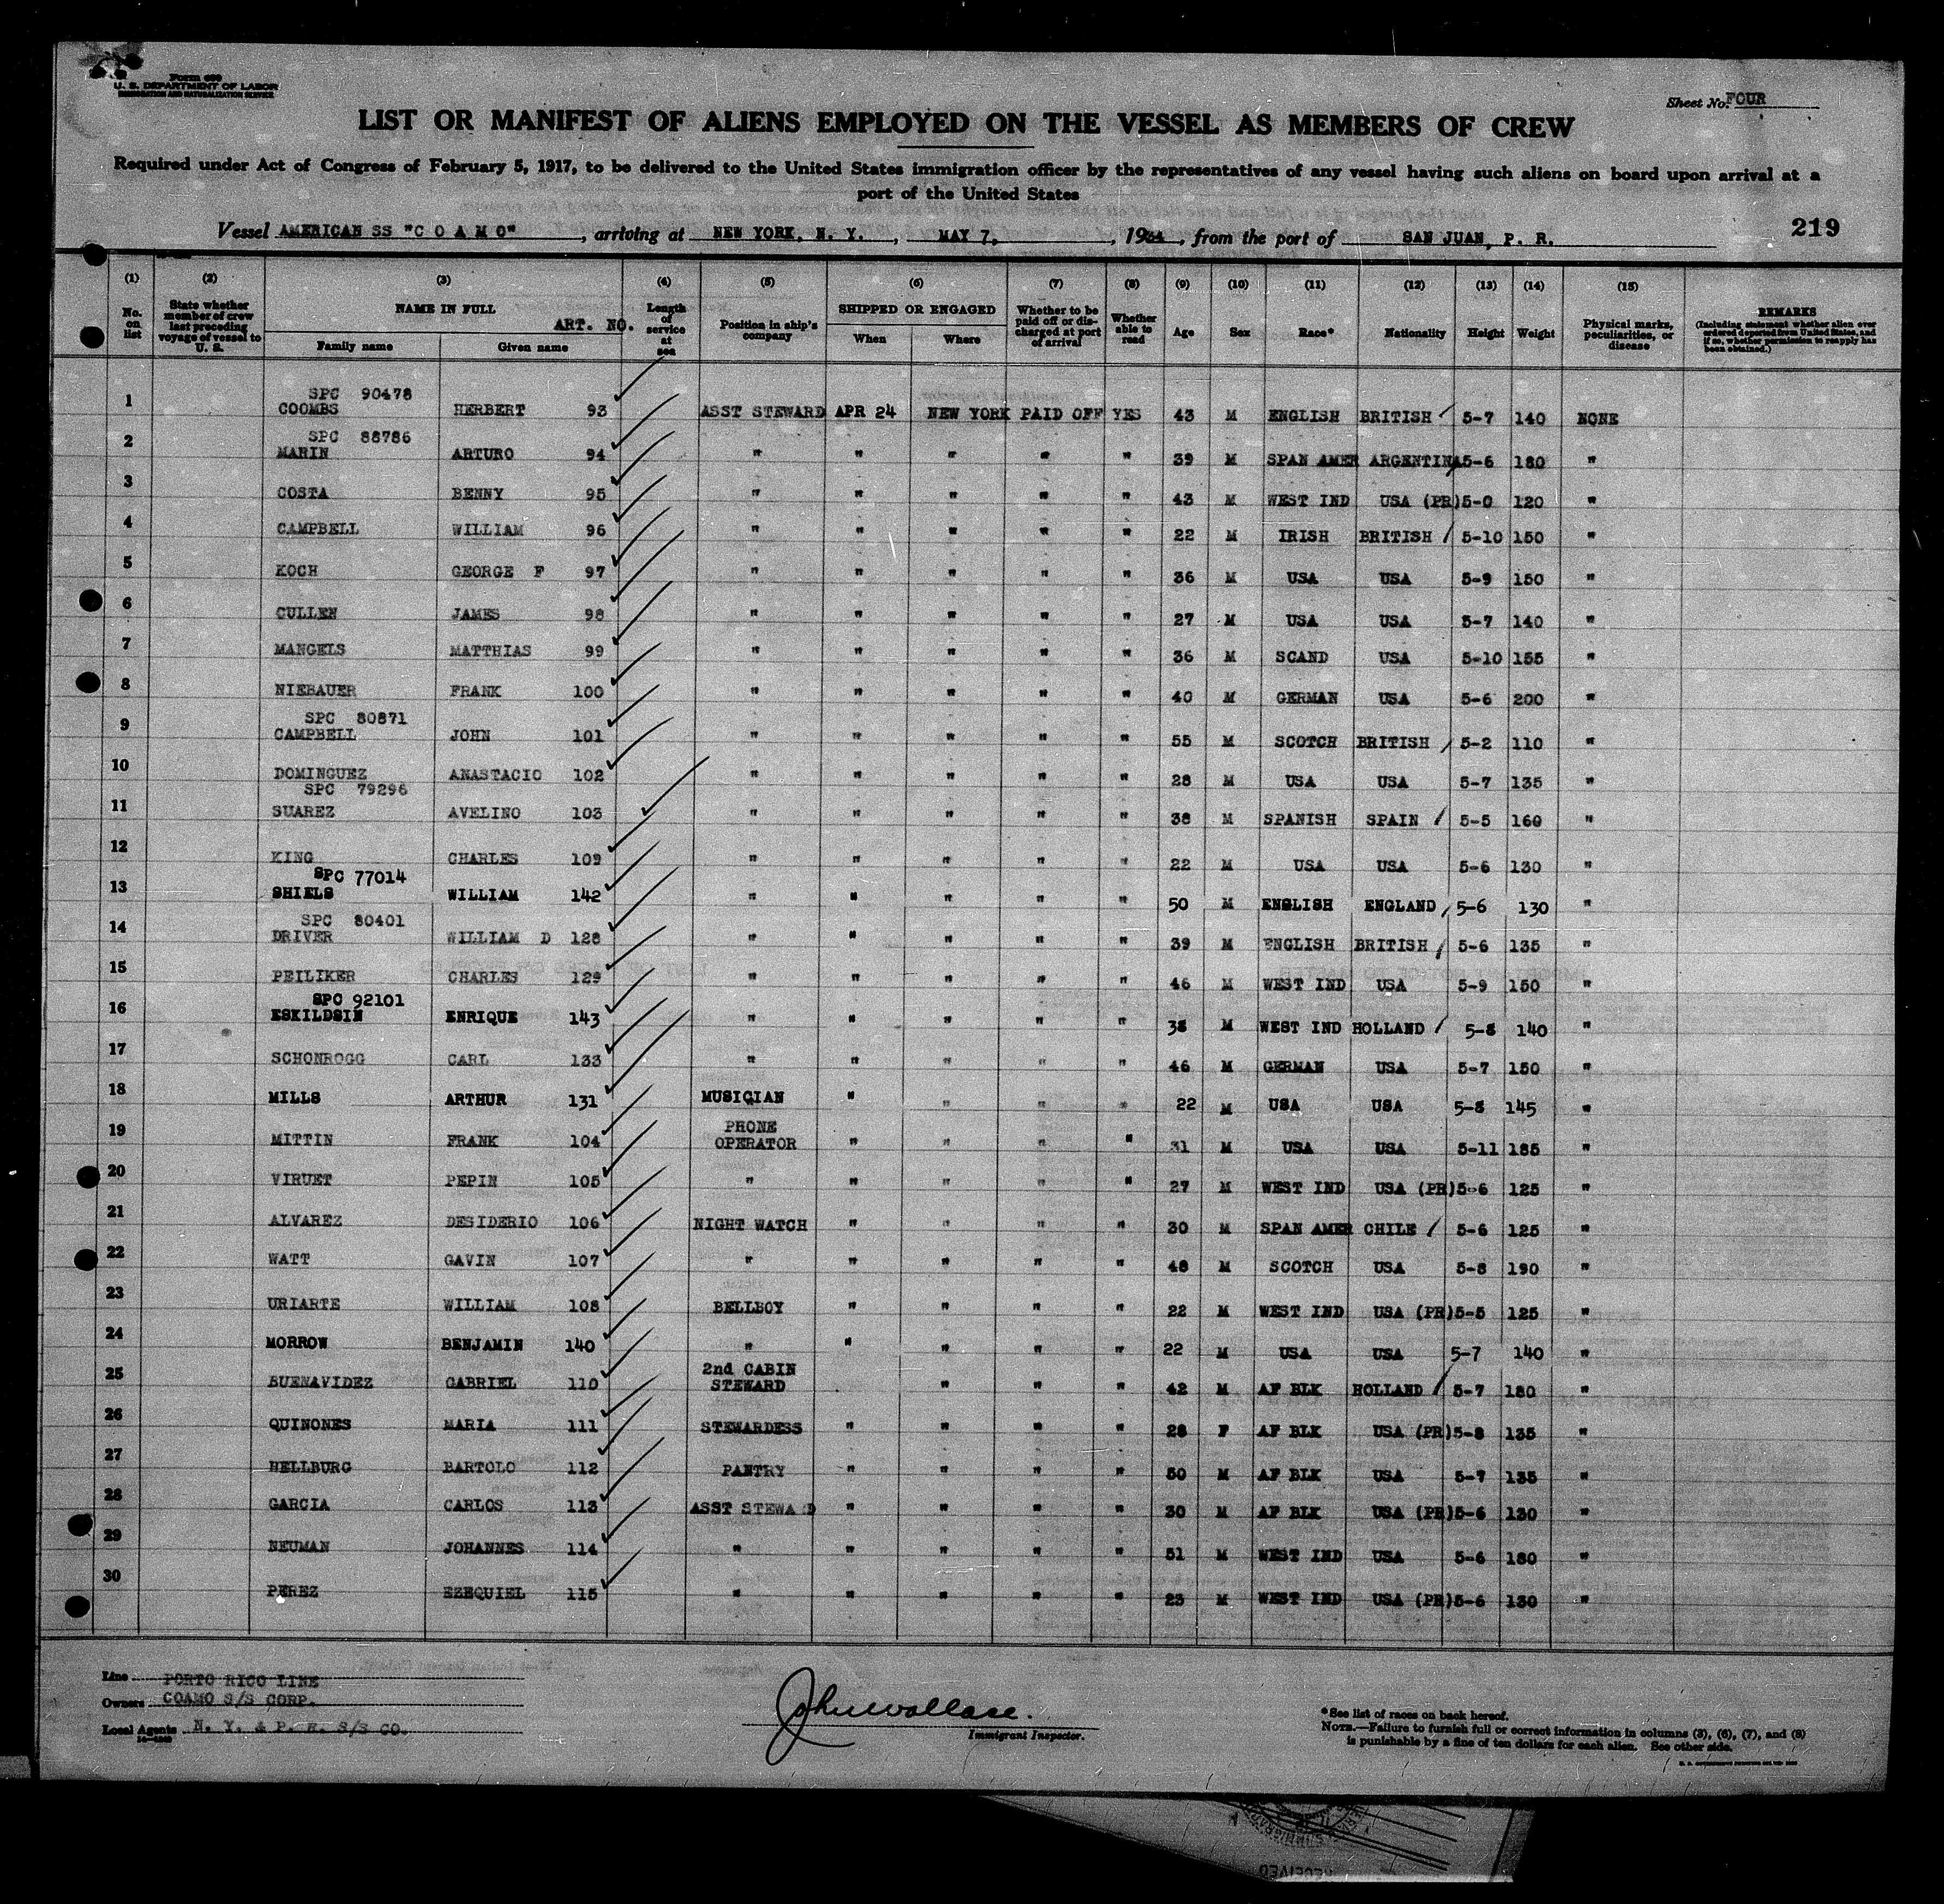 Form 680
U. S. DEPARTMENT OF LABOR
IMMIGRATION AND NATURALIZATION SERVICE
Sheet No. FOUR
LIST OR MANIFEST OF ALIENS EMPLOYED ON THE VESSEL AS MEMBERS OF CREW
Required under Act of Congress of February 5, 1917, to be delivered to the United States immigration officer by the representatives of any vessel having such aliens on board upon arrival at a
port of the United States
Vessel AMERICAN SS "C O A M O" , arriving at NEW YORK, N. Y. , MAY 7, , 1934 , from the port of SAN JUAN, P. R.
219
(1) (2) (3) (4) (5) (6) (7) (8) (9) (10) (11) (12) (13) (14) (15)
No. on list State whether member of crew last preceding voyage of vessel to U. S. NAME IN FULL ART. NO. Family name Given name Length of service at sea Position in ship's company SHIPPED OR ENGAGED When Where Whether to be paid off or discharged at port of arrival Whether able to read Age Sex Race* Nationality Height Weight Physical marks, peculiarities, or disease REMARKS (Including statement whether alien ever ordered deported from United States, and if so, whether permission to reapply has been obtained.)
SPC 90478
1 COOMBS HERBERT 93 ASST STEWARD APR 24 NEW YORK PAID OFF YES 43 M ENGLISH BRITISH 5-7 140 NONE
SPC 88786
2 MARIN ARTURO 94 " " " " " 39 M SPAN AMER ARGENTINA 5-6 180 "
3 COSTA BENNY 95 " " " " " 43 M WEST IND USA (PR) 5-0 120 "
4 CAMPBELL WILLIAM 96 " " " " " 22 M IRISH BRITISH 5-10 150 "
5 KOCH GEORGE F 97 " " " " " 36 M USA USA 5-9 150 "
6 CULLEN JAMES 98 " " " " " 27 M USA USA 5-7 140 "
7 MANGELS MATTHIAS 99 " " " " " 36 M SCAND USA 5-10 155 "
8 NIEBAUER FRANK 100 " " " " " 40 M GERMAN USA 5-6 200 "
SPC 80871
9 CAMPBELL JOHN 101 " " " " " 55 M SCOTCH BRITISH 5-2 110 "
10 DOMINGUEZ ANASTACIO 102 " " " " " 28 M USA USA 5-7 135 "
SPC 79296
11 SUAREZ AVELINO 103 " " " " " 38 M SPANISH SPAIN 5-5 160 "
12 KING CHARLES 109 " " " " " 22 M USA USA 5-6 130 "
SPC 77014
13 SHIELS WILLIAM 142 " " " " " 50 M ENGLISH ENGLAND 5-6 130 "
SPC 80401
14 DRIVER WILLIAM D 128 " " " " " 39 M ENGLISH BRITISH 5-6 135 "
15 PEILIKER CHARLES 129 " " " " " 46 M WEST IND USA 5-9 150 "
SPC 92101
16 ESKILDSIN ENRIQUE 143 " " " " " 38 M WEST IND HOLLAND 5-8 140 "
17 SCHONROGG CARL 133 " " " " " 46 M GERMAN USA 5-7 150 "
18 MILLS ARTHUR 131 MUSICIAN " " " " 22 M USA USA 5-8 145 "
19 MITTIN FRANK 104 PHONE OPERATOR " " " " 31 M USA USA 5-11 185 "
20 VIRUET PEPIN 105 " " " " " 27 M WEST IND USA (PR) 5-6 125 "
21 ALVAREZ DESIDERIO 106 NIGHT WATCH " " " " 30 M SPAN AMER CHILE 5-6 125 "
22 WATT GAVIN 107 " " " " " 48 M SCOTCH USA 5-8 190 "
23 URIARTE WILLIAM 108 BELLBOY " " " " 22 M WEST IND USA (PR) 5-5 125 "
24 MORROW BENJAMIN 140 " " " " " 22 M USA USA 5-7 140 "
25 BUENAVIDEZ GABRIEL 110 2nd CABIN STEWARD " " " 42 M AF BLK HOLLAND 5-7 180 "
26 QUINONES MARIA 111 STEWARDESS " " " " 28 F AF BLK USA (PR) 5-8 135 "
27 HELLBURG BARTOLO 112 PANTRY " " " " 50 M AF BLK USA 5-7 135 "
28 GARCIA CARLOS 113 ASST STEWA D " " " " 30 M AF BLK USA (PR) 5-6 130 "
29 NEUMAN JOHANNES 114 " " " " " 51 M WEST IND USA 5-6 180 "
30 PEREZ EZEQUIEL 115 " " " " " 23 M WEST IND USA (PR) 5-6 130 "
Line PORTO RICO LINE
Owners COAMO S/S CORP.
Local Agents N. Y. & P. R. S/S CO.
John Wallace.
Immigrant Inspector.
*See list of races on back hereof.
NOTE.—Failure to furnish full or correct information in columns (3), (6), (7), and (8)
is punishable by a fine of ten dollars for each alien. See other side.
RECEIVED